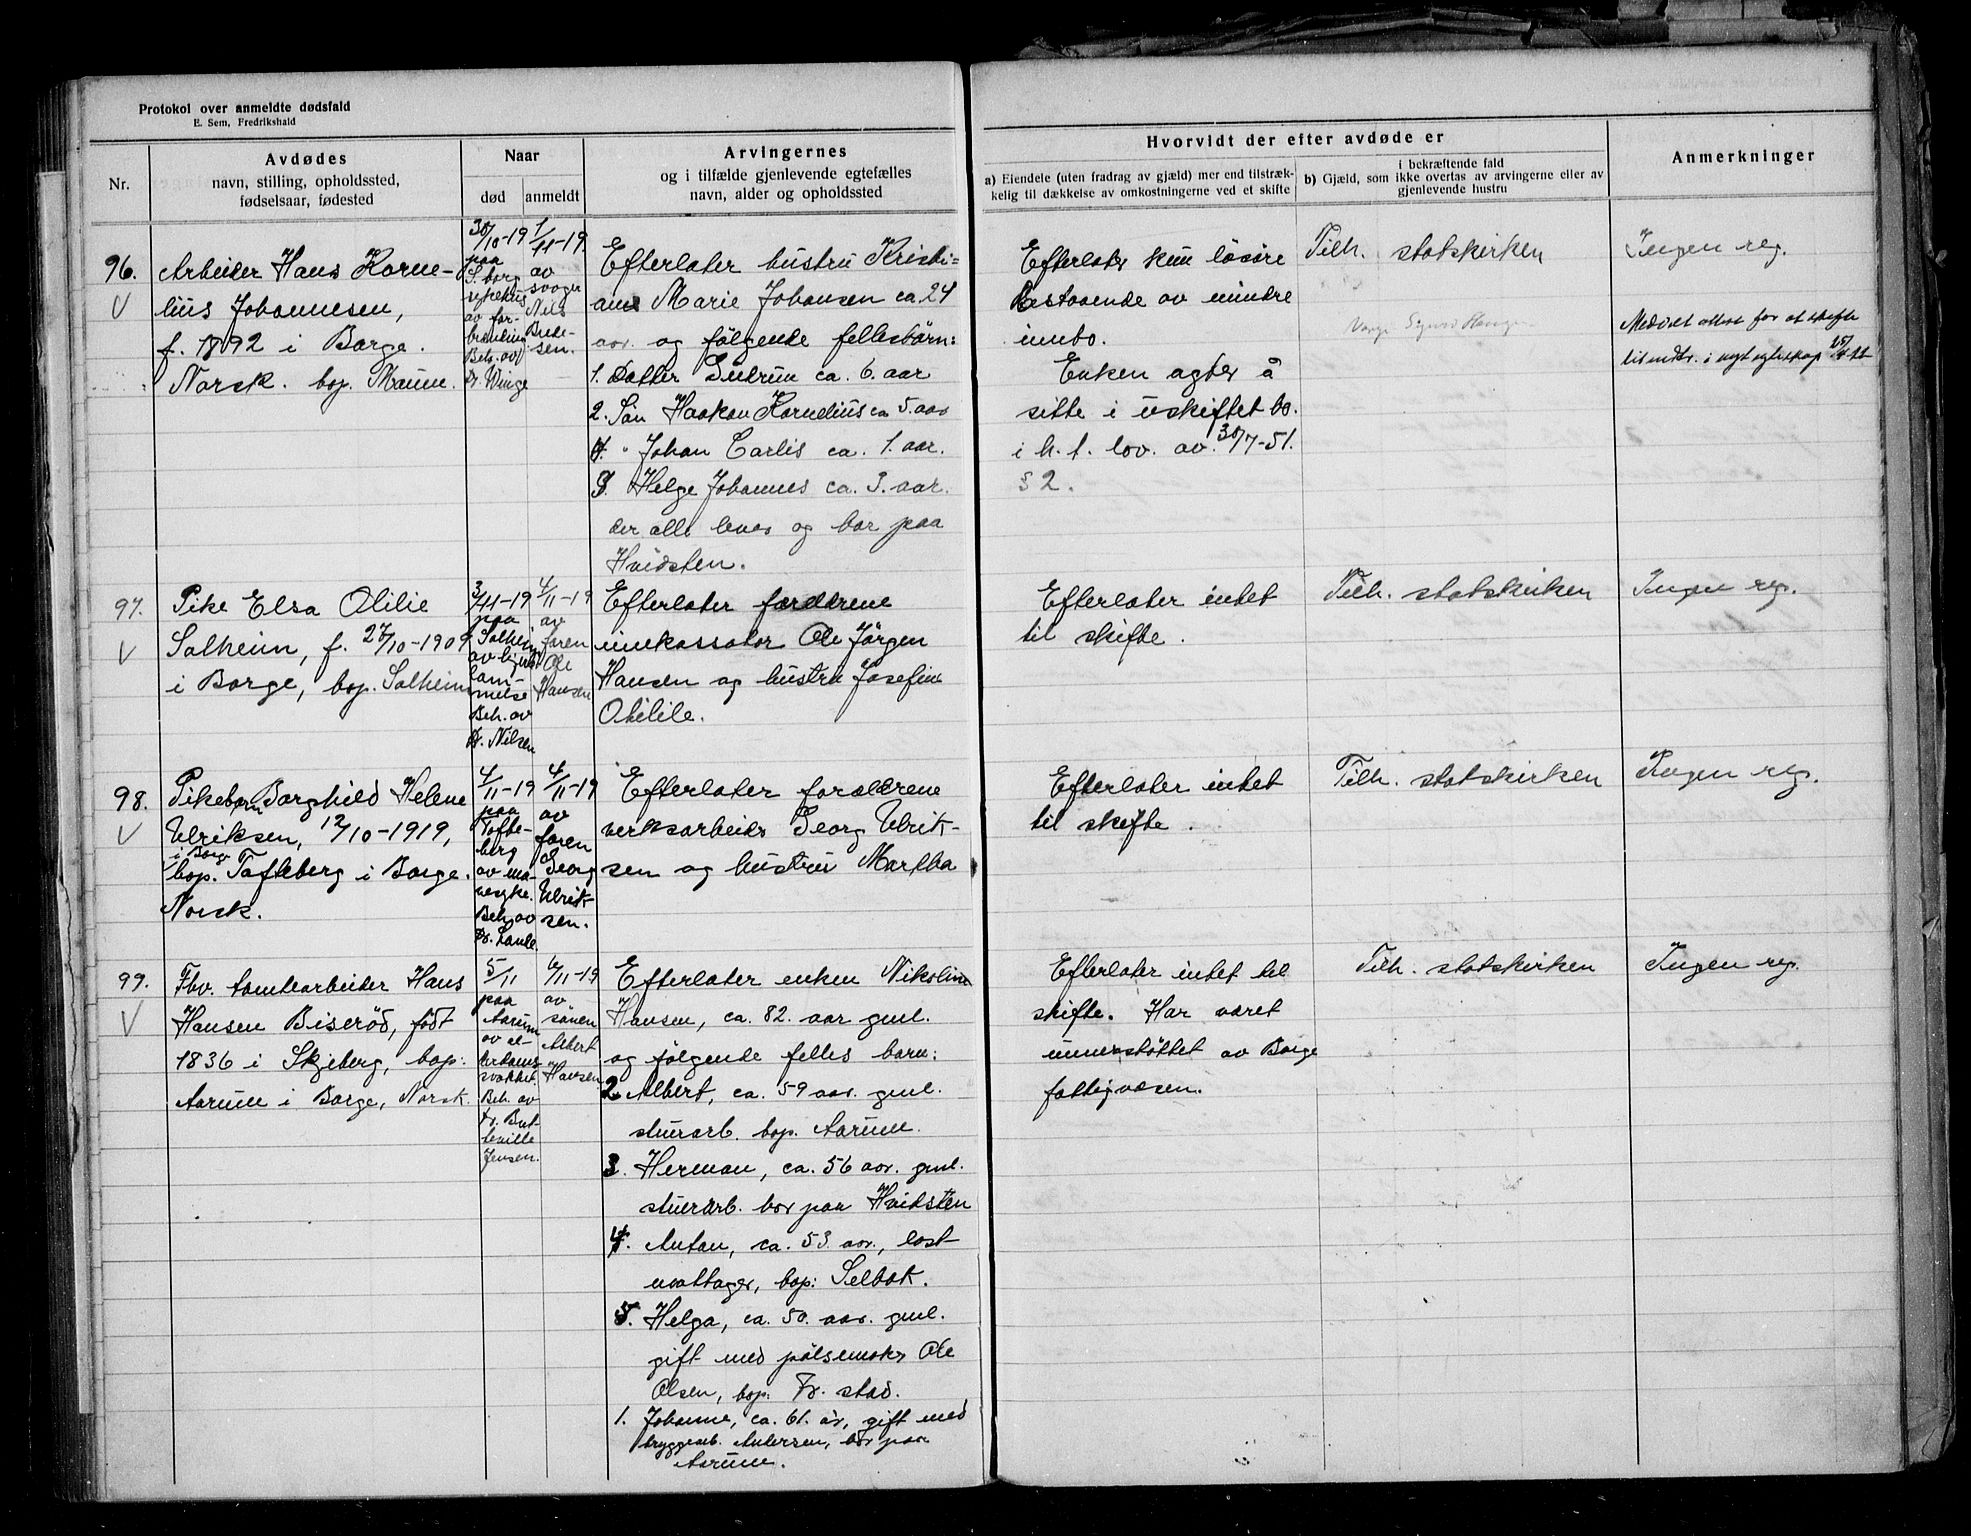 Protokol over anmeldte dødsfald
E. Sem, Fredrikshald
Nr.
Avdødes
navn, stilling, opholdssted,
fødselsaar, fødested
Naar
død
anmeldt
Arvingernes
og i tilfælde gjenlevende egtefælles
navn, alder og opholdssted
Hvorvidt der efter avdøde er
a) Eiendele (uten fradrag av gjæld) mer end tilstræk-
kelig til dækkelse av omkostningerne ved et skifte
i bekræftende fald
b) Gjæld, som ikke overtas av arvingerne eller av
gjenlevende hustru
Anmerkninger
96.
V
Arbeider Hans Korne-
lius Johannesen,
f. 1892 i Borge.
Norsk. bop. Maum.
30/10-19
paa
S.borg
sykehus
av for-
brænding
Beh. av
Dr. Winge
1/11-19
av
svoger
Nils
Brede-
sen.
Efterlater hustru Kristi-
ane Marie Johansen ca. 24
aar. og følgende fellesbørn:
1. Datter Gudrun ca. 6. aar
2. Søn Haakon Kornelius ca 5. aar
4. " Johan Carlis ca. 1. aar.
3. Helge Johannes ca. 3. aar.
der alle leves og bor paa
Hvidsten.
Efterlater kun løsøre
bestaaende av mindre
innbo.
Enken agter å
sitte i uskiftet bo.
i h. t. lov. av. 30/7-51.
§ 2.
Tilh. statskirken
Verge Sigurd
Ingen reg.
Meddelt attest for at skifte
til nytegteskap
97.
V
Pike Elsa Otilie
Solheim, f. 27/10-1909
i Borge, bop. Solheim
3/11-19
paa
Solheim
av
lam-
melse
Beh. av
Dr. Nilsen
4/11-19
av
faren
Ole
Hansen
Efterlater forældrene
innkassator Ole Jørgen
Hansen og hustru Josefine
Otilile.
Efterlater intet
til skifte.
Tilh. statskirken
Ingen reg.
98.
V
Pikebarn Borghild Helene
Ulriksen, 12/10-1919,
i Borge
bop. Tofteberg i Borge.
Norsk.
4/11-19
paa
Tofte-
berg
av ma-
vesyke.
Beh. av
Dr.
4/11-19
av
faren
Georg
Ulrik-
sen.
Efterlater forældrene
verksarbeider Georg Ulrik-
sen og hustru Martha
Efterlater intet
til skifte.
Tilh. statskirken
Ingen reg.
99.
V
Fbv. tomtearbeider Hans
Hansen Biserød, født
1836 i Skjeberg, bop:
Aarum i Borge, Norsk.
5/11
paa
Aarum
av al-
derdoms
svakhet.
Beh. av
Dr. But-
teville
Jensen.
6/11-19
av
sønnen
Albert
Hansen
Efterlater enken Nikoline
Hansen, ca. 82. aar gml.
og følgende felles barn:
2. Albert, ca. 59 aar. gml.
stuerarb. bop. Aarum.
3. Herman, ca. 56 aar. gml.
stuerarb. bor paa Hvidsten
4. Anton, ca. 53. aar., last-
mottager, bop: Selbak.
5. Helga, ca. 50. aar. gml.
gift med pølsemaker Ole
Olsen, bop. Fr. stad.
1. Johanne, ca. 61. år, gift med
bryggearb. Andersen, bor paa
Aarum.
Efterlater intet til
skifte. Har været
understøttet av Borge
fattigvæsen.
Tilh. statskirken
Ingen reg.